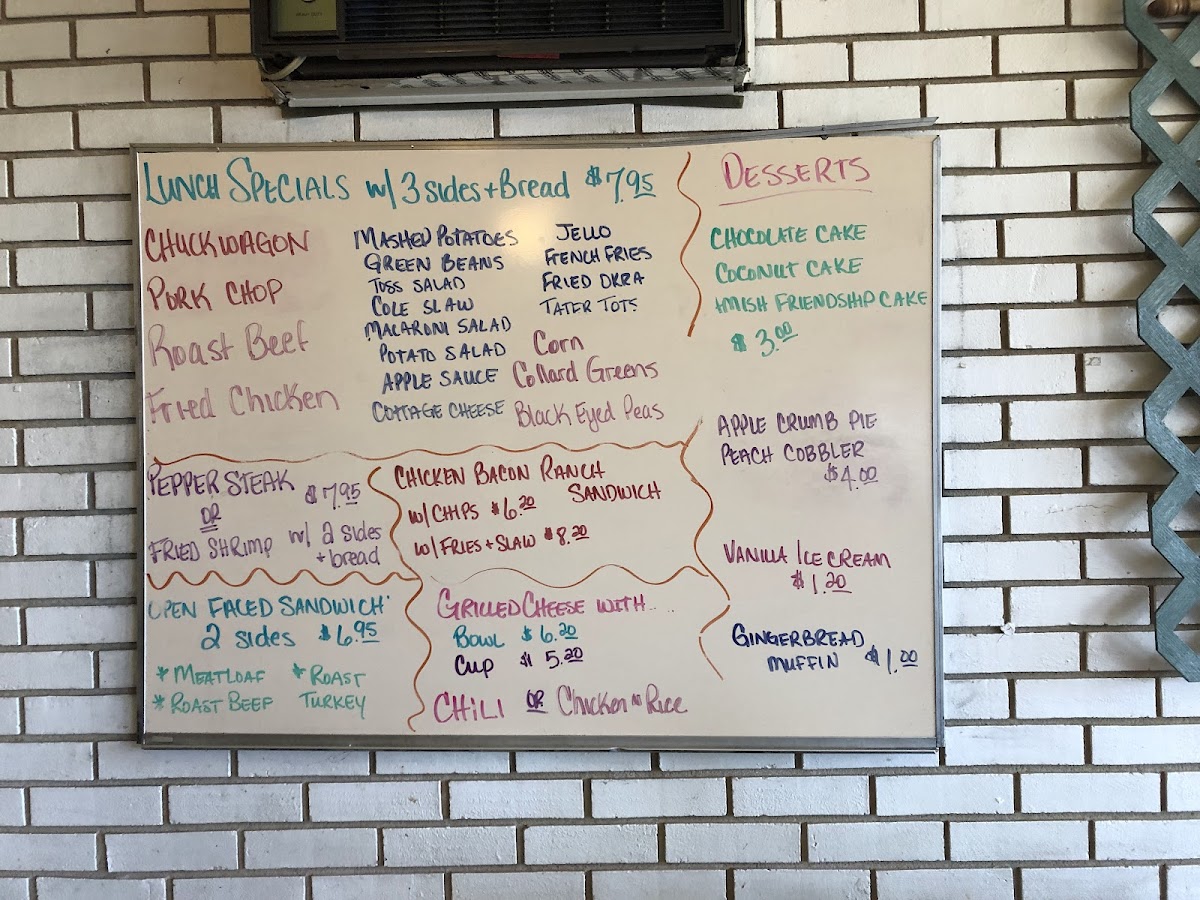 LUNCH SPECIALS w/ 3 sides + Bread $7.95
CHUCKWAGON
PORK CHOP
Roast Beef
Fried Chicken
MASHED POTATOES
GREEN BEANS
TOSS SALAD
COLE SLAW
MACARONI SALAD
POTATO SALAD
APPLE SAUCE
COTTAGE CHEESE
JELLO
FRENCH FRIES
FRIED OKRA
TATER TOTS
Corn
Collard Greens
Black Eyed Peas
PEPPER STEAK $7.95
OR
FRIED SHRIMP w/ 2 sides
+ bread
CHICKEN BACON RANCH
SANDWICH
w/ CHIPS $6.20
w/ FRIES + SLAW $8.20
OPEN FACED SANDWICH
2 sides $6.95
* MEATLOAF * ROAST
* ROAST BEEF TURKEY
GRILLED CHEESE WITH....
Bowl $6.20
Cup $5.20
CHILI OR Chicken N Rice
DESSERTS
CHOCOLATE CAKE
COCONUT CAKE
AMISH FRIENDSHIP CAKE
$3.00
APPLE CRUMB PIE
PEACH COBBLER
$4.00
VANILLA ICE CREAM
$1.20
GINGERBREAD
MUFFIN $1.00